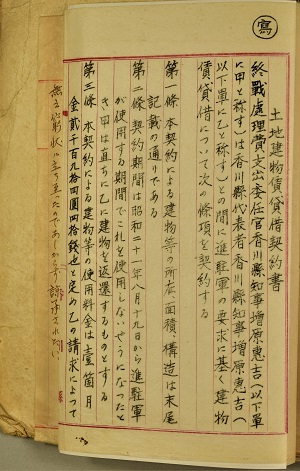 寫
土地建物賃貸借契約書
終戰處理費支出委任官香川縣知事増原惠吉(以下單
に甲と称す)は香川縣代表者香川縣知事増原惠吉(
以下單に乙と称す)との間に進駐軍の要求に基く建物
賃貸借について次の條項を契約する
第一條 本契約による建物等の所在、面積、構造は末尾
記載の通りである
第二條 契約期間は昭和二十一年八月十九日から進駐軍
が使用する期間でこれを使用しないやうになつたと
き甲は直ちに乙に建物を返還するものとする
第三條 本契約による建物等の使用料金は壹箇月
金貳千百九拾四圓四拾錢也と定め乙の請求によつて